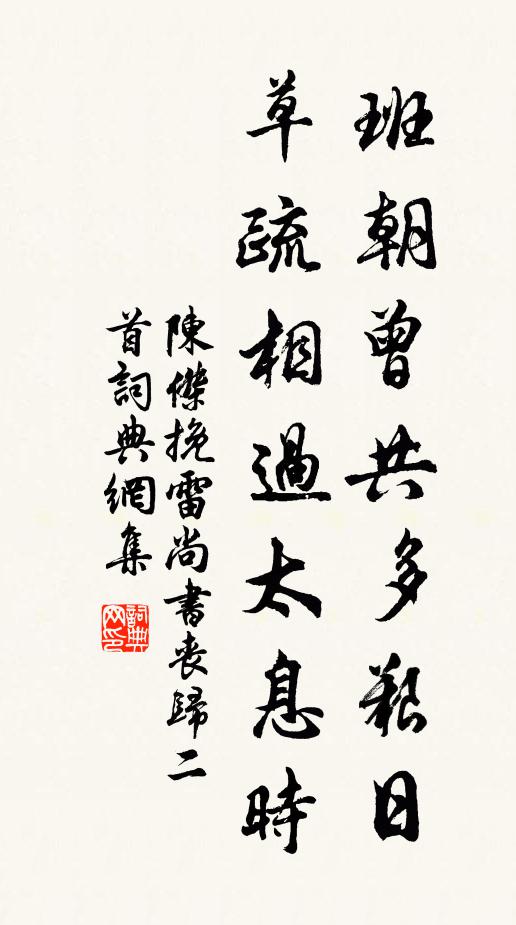 班朝曾共多艱日
草疏相過太息時
陳傑挽雷尚書喪歸二
首詞典網集
詞典網印